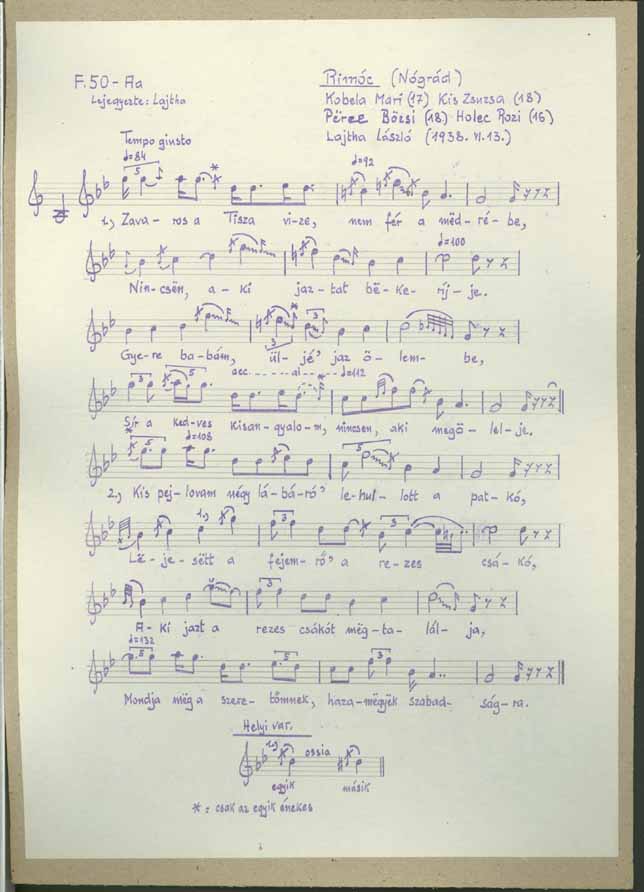 F.50-Aa
Lejegyezte: Lajtha
Rimóc (Nógrád)
Kobela Mari (17) Kis Zsuzsa (18)
Pérec Bözsi (18) Holec Rozi (16)
Lajtha László (1938. VI. 13.)
Tempo giusto
♩=84
♩=92
1., Zava-ros a Tisza vi-ze, nem fér a mëd-ré-be,
♩=100
Nin-csën, a-ki jaz-tat bë-ke-ríj-je.
Gye-re babám, ül-jé' jaz ö-lem-be,
acc. al ♩=112
Sír a ked-ves kisan-gyalo-m, nincsen, aki megö-lel-je.
♩=108
2., Kis pej-lovam négy lá-bá-ró' le-hul-lott a pat-kó,
1.,
Lë-je-sëtt a fejem-rő' a re-zes csá-kó,
A-ki jazt a rezes csákót mëg-ta-lál-ja,
♩=132
Mondja mëg a szere-tőmnek, haza-mëgyëk szabad-ság-ra.
Helyi var.
1., ossia
egyik másik
* = csak az egyik énekes